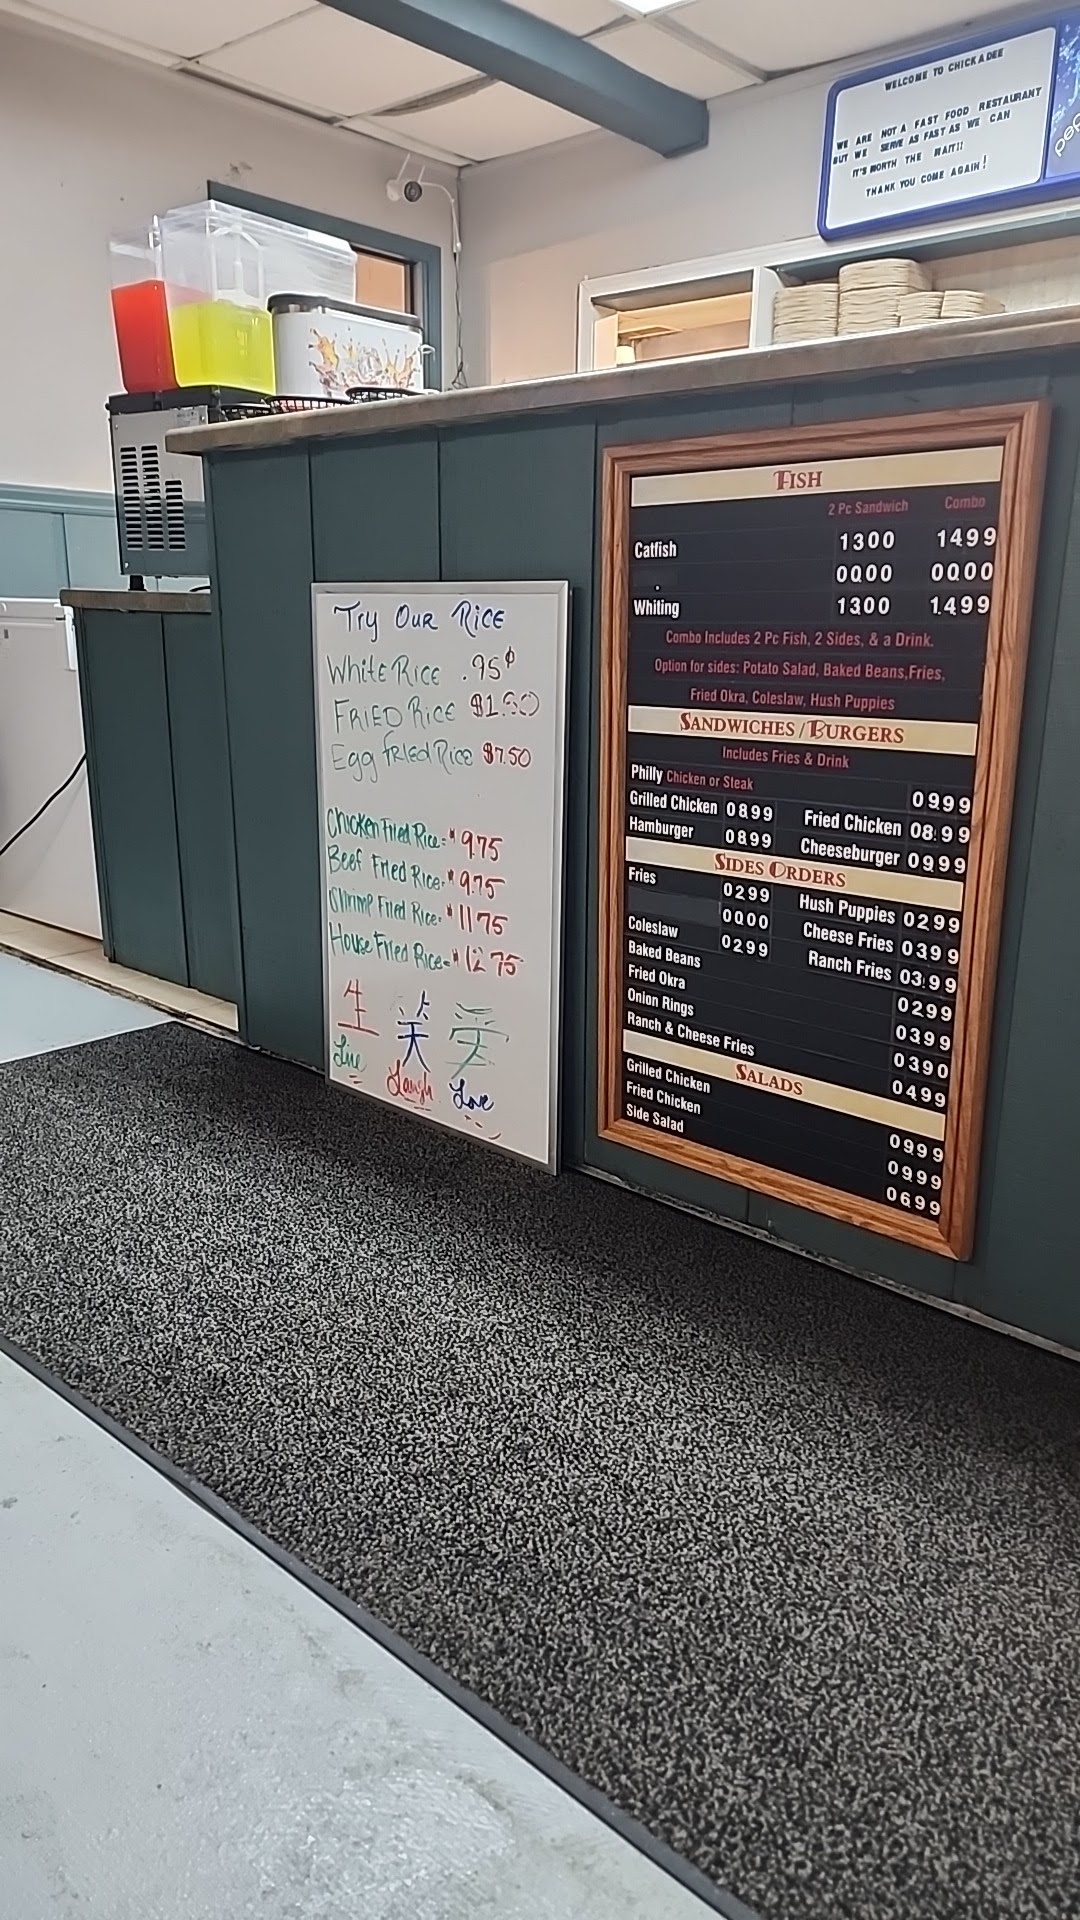 WELCOME TO CHICKADEE
WE ARE NOT A FAST FOOD RESTAURANT
BUT WE SERVE AS FAST AS WE CAN
IT'S WORTH THE WAIT!!
THANK YOU COME AGAIN!
Try Our Rice
White Rice .95¢
Fried Rice $1.50
Egg Fried Rice $7.50
Chicken Fried Rice= $9.75
Beef Fried Rice= $9.75
Shrimp Fried Rice= $11.75
House Fried Rice= $12.75
生 笑
Live Laugh Love
FISH
2 Pc Sandwich Combo
Catfish 1300 1499
0000 0000
Whiting 1300 1499
Combo Includes 2 Pc Fish, 2 Sides, & a Drink.
Option for sides: Potato Salad, Baked Beans,Fries,
Fried Okra, Coleslaw, Hush Puppies
SANDWICHES/BURGERS
Includes Fries & Drink
Philly Chicken or Steak 0999
Grilled Chicken 0899 Fried Chicken 0899
Hamburger 0899 Cheeseburger 0999
SIDES ORDERS
Fries 0299 Hush Puppies 0299
0000 Cheese Fries 0399
Coleslaw 0299 Ranch Fries 0399
Baked Beans 0299
Fried Okra 0399
Onion Rings 0390
Ranch & Cheese Fries 0499
SALADS
Grilled Chicken 0999
Fried Chicken 0999
Side Salad 0699